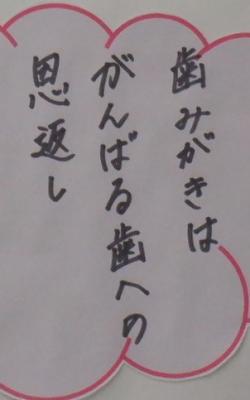 歯みがきは
がんばる歯への
恩返し